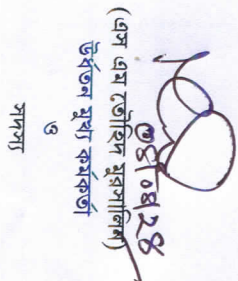 (এস এম তৌহিদ মুরসালিন)
ঊর্ধ্বতন মুখ্য কর্মকর্তা
ও
সদস্য